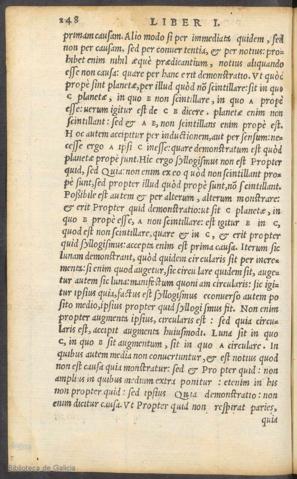 248 LIBER I.
primam causam. Alio modo si per immediata quidem, sed
non per causam, sed per convertentia, & per notius: pro-
hibet enim nihil æquè prædicantium, notius aliquando
esse non causa: quare per hanc erit demonstratio. Vt quòd
propè sint planetæ, per illud quòd nõ scintillare: sit in quo
C planetæ, in quo B non scintillare, in quo A propè
esse: verum igitur est de C B dicere. planetæ enim non
scintillant: sed & A B, non scintillans enim propè est.
Hoc autem accipitur per inductionem, aut per sensum: ne-
cesse ergo A ipsi C inesse: quare demonstratum est quòd
planetæ propè sunt. Hic ergo syllogismus non est Propter
quid, sed Quia: non enim ex eo quòd non scintillant pro-
pè sunt, sed propter illud quòd propè sunt, nõ scintillant.
Possibile est autem & per alterum, alterum monstrare:
& erit Propter quid demonstratio: ut sit C planetæ, in
quo B propè esse, A non scintillare: est igitur B in C,
quod est non scintillare. quare & in C, & erit propter
quid syllogismus: accepta enim est prima causa. Iterum sic
lunam demonstrant, quòd quidem circularis sit per incre-
menta: si enim quod augetur, sic circulare quidem sit, auge-
tur autem sic luna: manifestum quoniam circularis: sic igi-
tur ipsius quia, factus est syllogismus econuerso autem po
sito medio, ipsius propter quid syllogismus fit. Non enim
propter augmenta ipsius, circularis est: sed quia circu-
laris est, accipit augmenta huiusmodi. Luna sit in quo
C, in quo B sit augmentum, sit in quo A circulare. In
quibus autem media non convertuntur, & est notius quod
non est causa quia monstratur: sed & Propter quid: non
amplius in quibus medium extra ponitur: etenim in his
non propter quid: sed ipsius Quia demonstratio: non
enim dicitur causa. Vt Propter quid non respirat paries,
quia
Biblioteca de Galicia